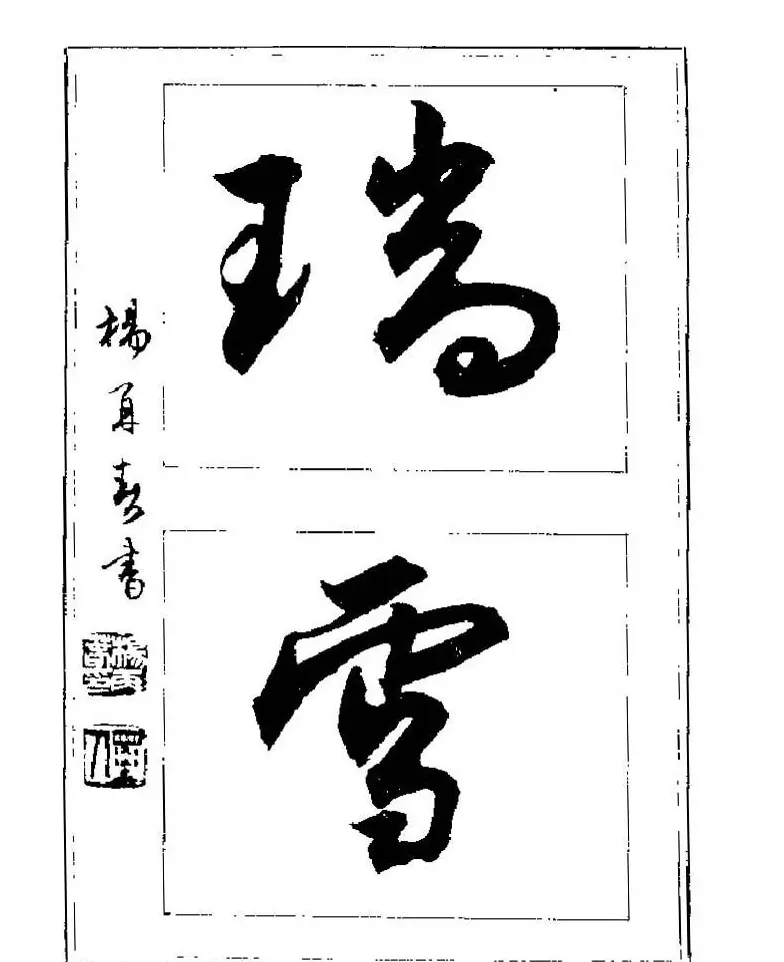 瑞
雪
楊再春書